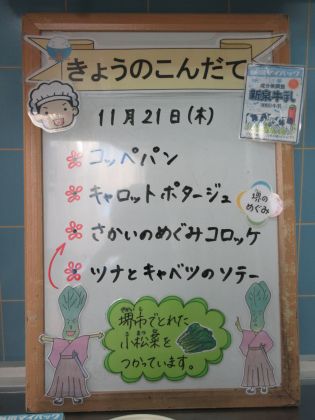 きょうのこんだて
11月21日(木)
コッペパン
キャロットポタージュ
堺の
めぐみ
さかいのめぐみコロッケ
ツナとキャベツのソテー
堺市でとれた
小松菜を
つかっています。